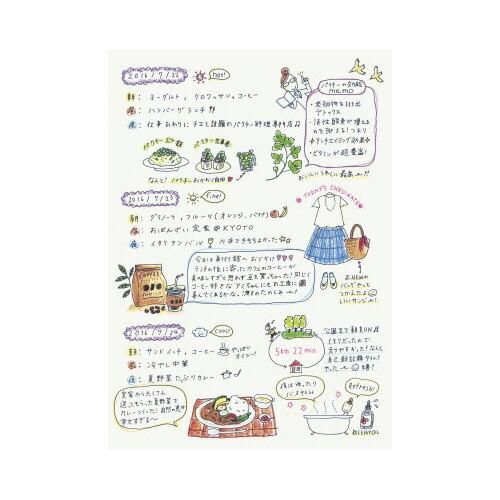 2016/7/22 hot!
朝: ヨーグルト, クロワッサン, コーヒー
昼: ハンバーグランチ
夜: 仕事おわりにチエと話題のパクチー料理専門店♫
パクチーの効能
memo
・老廃物を排出
デトックス
・活性酸素が増える
のを抑える! つまり
アンチエイジング効果
・ビタミンが超豊富!
パクチー
パクチー
なんと! パクチーおかわり自由
おいしいうれしい最高ー!!
2016/7/23 fine!
朝: グラノーラ, フルーツ(オレンジ, バナナ)
昼: おばんざい定食@KYOTO
夜: イタリアンバル 川床できもちよかった
TODAY'S CORDINATE
COFFEE
今日は
ランチの後に寄ったカフェのコーヒーが
美味しすぎて思わず豆も買っちゃった! 同じく
コーヒー好きな
おNEWの
バッグやっと
つかえたよ
いいカンジー!
2016/7/24 cool!
朝: サンドイッチ, コーヒー
やっぱり
昼: 冷やし中華
夜: 夏野菜たっぷりカレー
5km 22min.
公園まで朝RUN♫
くもりだったので
走りやすかった! なんと
自己新記録タイム!
やったー
実家からたくさん
送ってもらった夏野菜で
カレーつくった! 自然の恵み
幸せすぎるー
夜はゆったり
バスタイム
Refresh!
ROSEHIPOIL